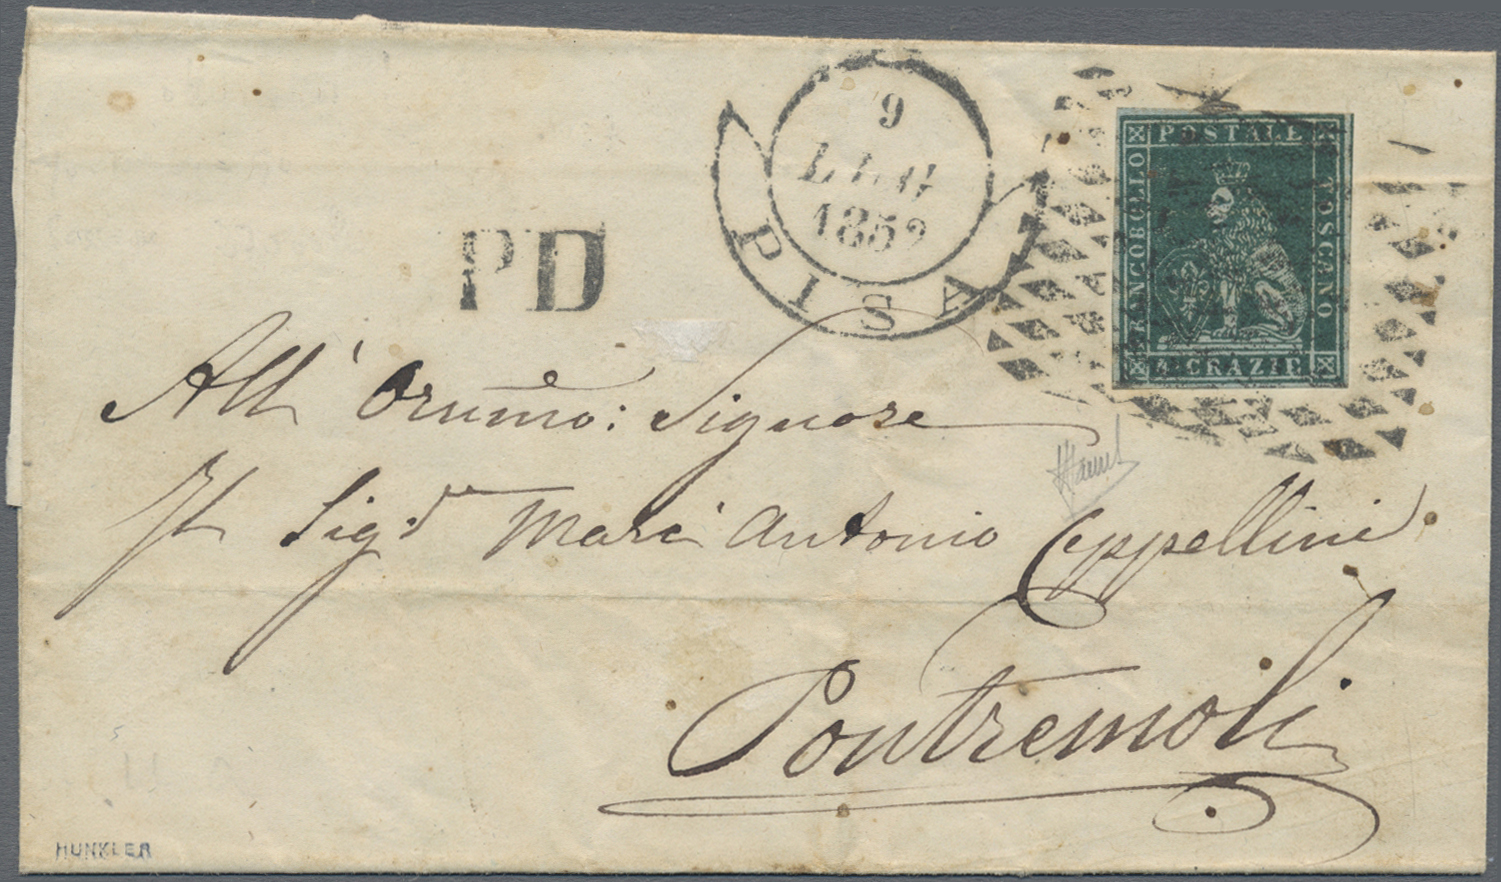 9
1852
PISA
PD
FRANCOBOLLO
POSTALE
TOSCANO
4 CRAZIE
All' Ornmo: Signore
Il Sig.r Marc' Antonio Cappellini
Pontremoli
HUNKLER